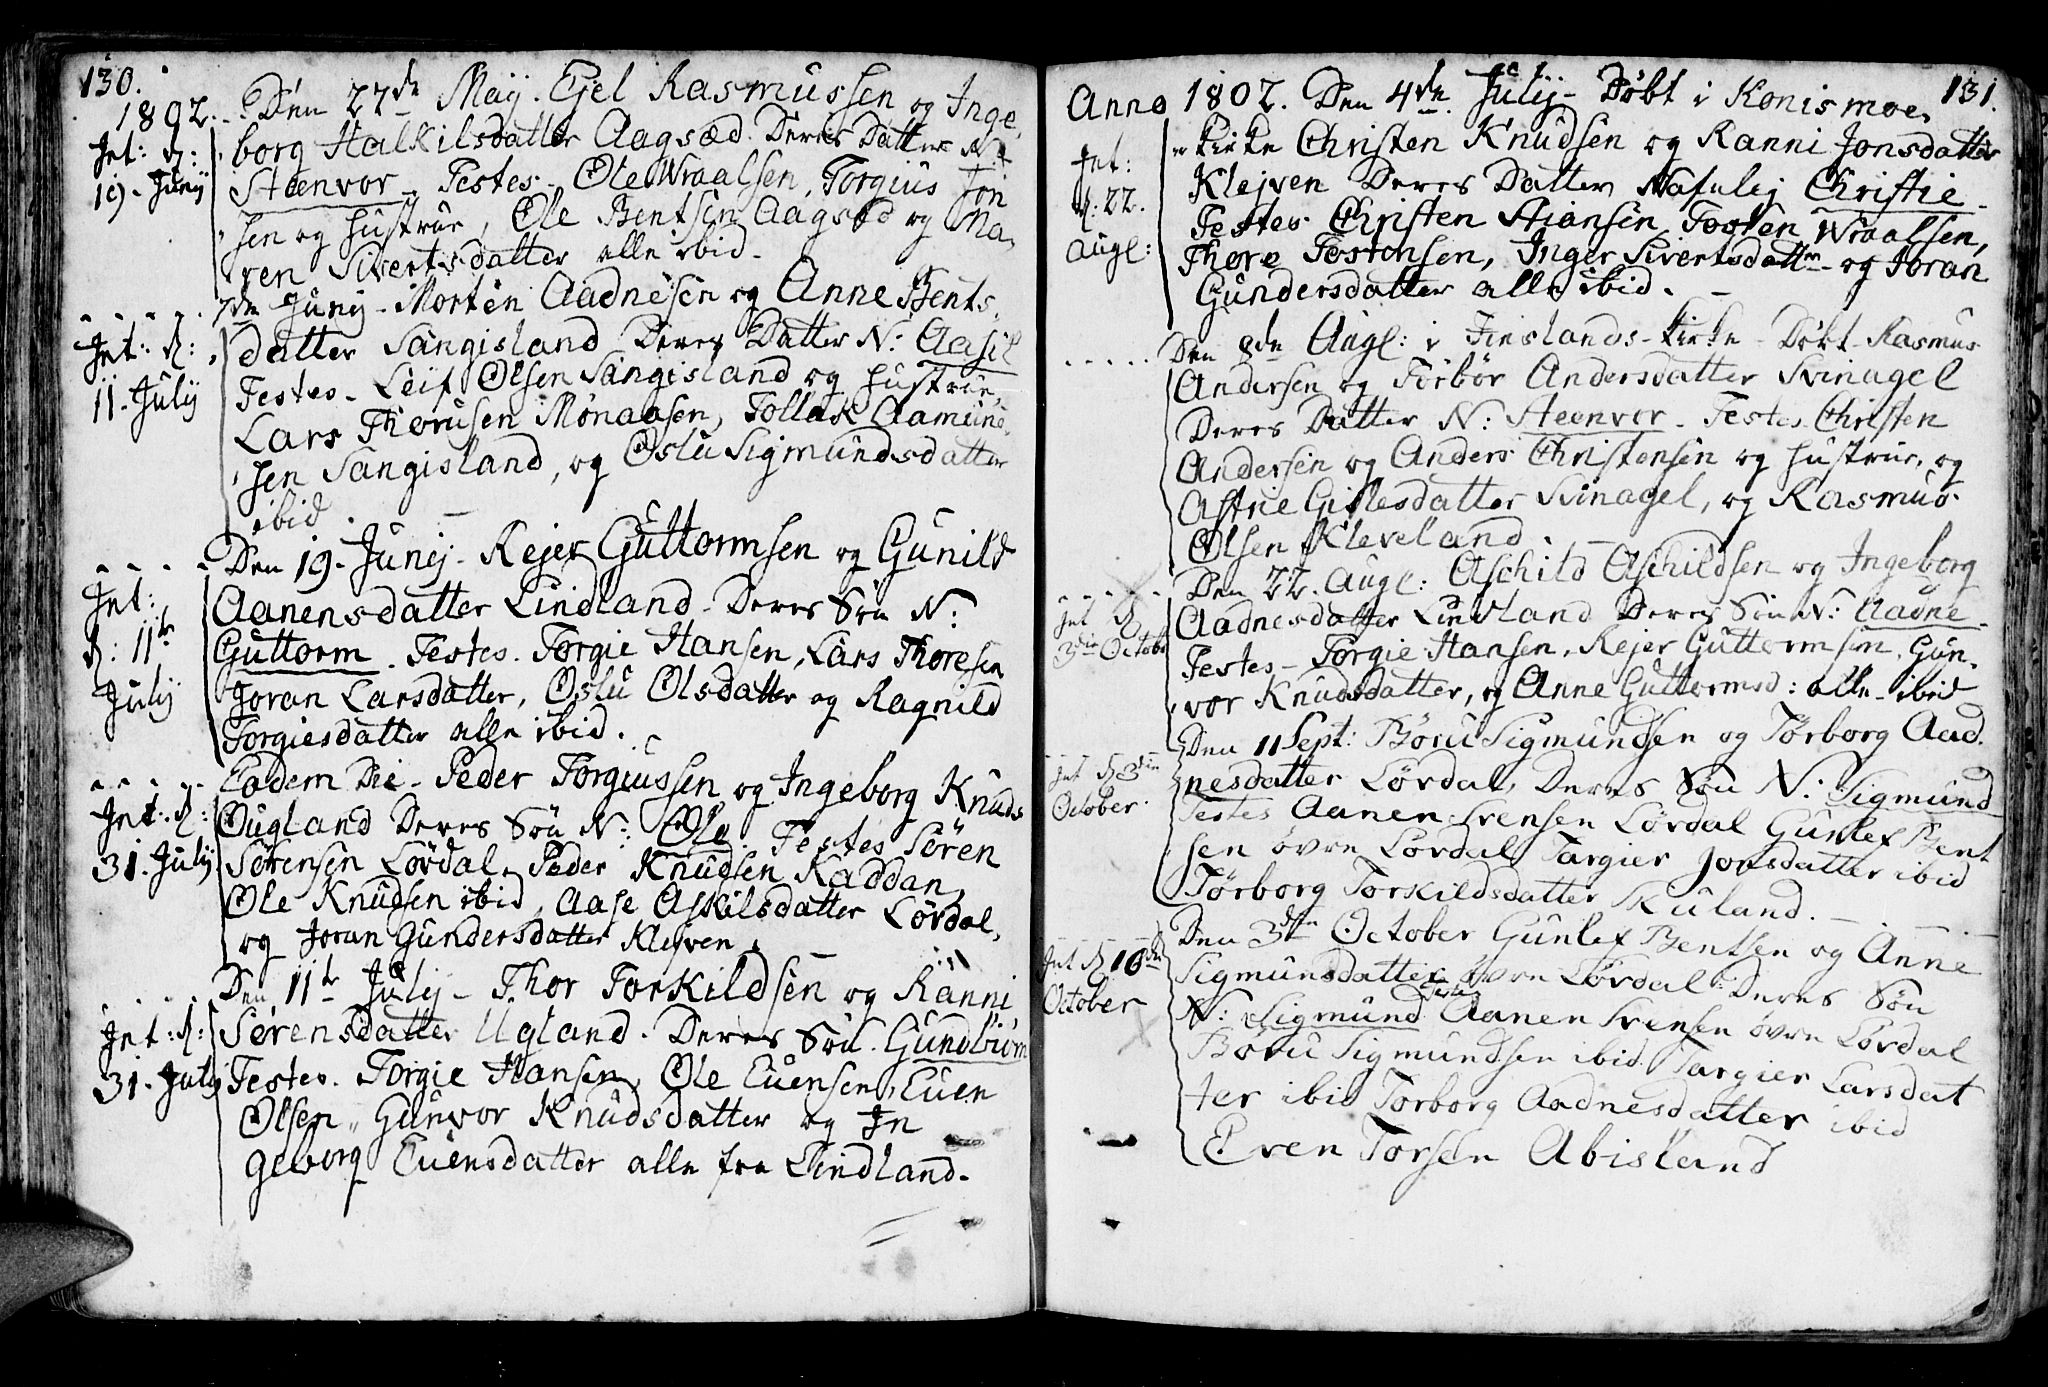 130.
1802. Den 27de Maij. Ejel Rasmussen og Inge,
Int: d: borg Halkilsdatter Aagsæd. Deres Datter N:
19. Junij Steenvor. Testes. Ole Wraalsen, Torgius Jon
sen og hustrue, Ole Bentsen Aagsæd og Ma,
ren Sivertsdatter alle ibid.
7de Junij. Morten Aadnesen og Anne Bents,
Int: d: datter Sangisland Deres Datter N: Aasil
11. Julij Testes. Leif Olsen Sangisland og hustrue,
Lars Thorusen Mønaasen, Tollak Aamun
sen Sangisland, og Oslu Sigmundsdatter
ibid.
Den 19. Junij. Rejer Guttormsen og Gunild
Int: Aanensdatter Lindland. Deres Søn N:
d: 11te Guttorm. Testes. Torgie Hansen, Lars Thoresen
Julij Joran Larsdatter, Oslu Olsdatter og Ragnild
Torgiesdatter alle ibid.
Eodem Die. Peder Torgiussen og Ingeborg Knuds
Int: d: Ougland Deres Søn N: Ole. Testes Sören
31. Julij Sørensen Lørdal, Peder Knudsen Raddan,
Ole Knudsen ibid, Aase Askilsdatter Lørdal,
og Joran Gundersdatter Klejven.
Den 11te Julij. Thor Torkildsen og Ranni
Int: d: Sørensdatter Ugland. Deres Søn. Gundbiörn
31. Julij Testes. Torgie Hansen, Ole Evensen, Even
Olsen, Gunvor Knudsdatter og In
geborg Evensdatter alle fra Lindland.
131.
Anno 1802. Den 4de Julij. Døbt i Konismoe,
Int: kirke Christen Knudsen og Ranni Jonsdatter
d: 22. Klejven Deres Datter Nafnlej Christie.
Augl: Testes. Christen Stiansen, Tosten Wraalsen,
Thore Tostensen, Inger Sivertsdatter og Joran
Gundersdatter alle ibid.
Den 8de Augl: i Finslands kirke Døbt Rasmus
Andersen og Torbør Andersdatter Svinagel
Deres Datter N: Steenvor. Testes. Christen
Andersen og Anders Christensen og hustrue, og
Astrie Gitlesdatter Svinagel, og Rasmus
Olsen Kleveland.
Den 22. Augl: Aschild Aschildsen og Ingeborg
Int d Aadnesdatter Lindland Deres Søn N: Aadne.
3die Octobr Testes. Torgie Hansen, Rejer Guttormsen, Gun,
vor Knudsdatter, og Anne Guttormsd: alle ibid
Den 11 Sept: Børu Sigmundsen og Tørborg Aad
Int d 3die nesdatter Lørdal, Deres Søn N: Sigmund
October. Testes Aanen Svensen Lørdal Gunlef Bent
sen övre Lørdal, Targier Jonsdatter ibid
Törborg Torkildsdatter Skuland.
Den 3die October Gunlef Bentsen og Anne
Int d 10de Sigmunsdatter övre Lørdal Deres Søn
October N: Sigmund Testes Aanen Svensen övre Lørdal
Børu Sigmundsen ibid. Targier Larsdat
ter ibid Torborg Aadnesdatter ibid
Even Torsen Abisland